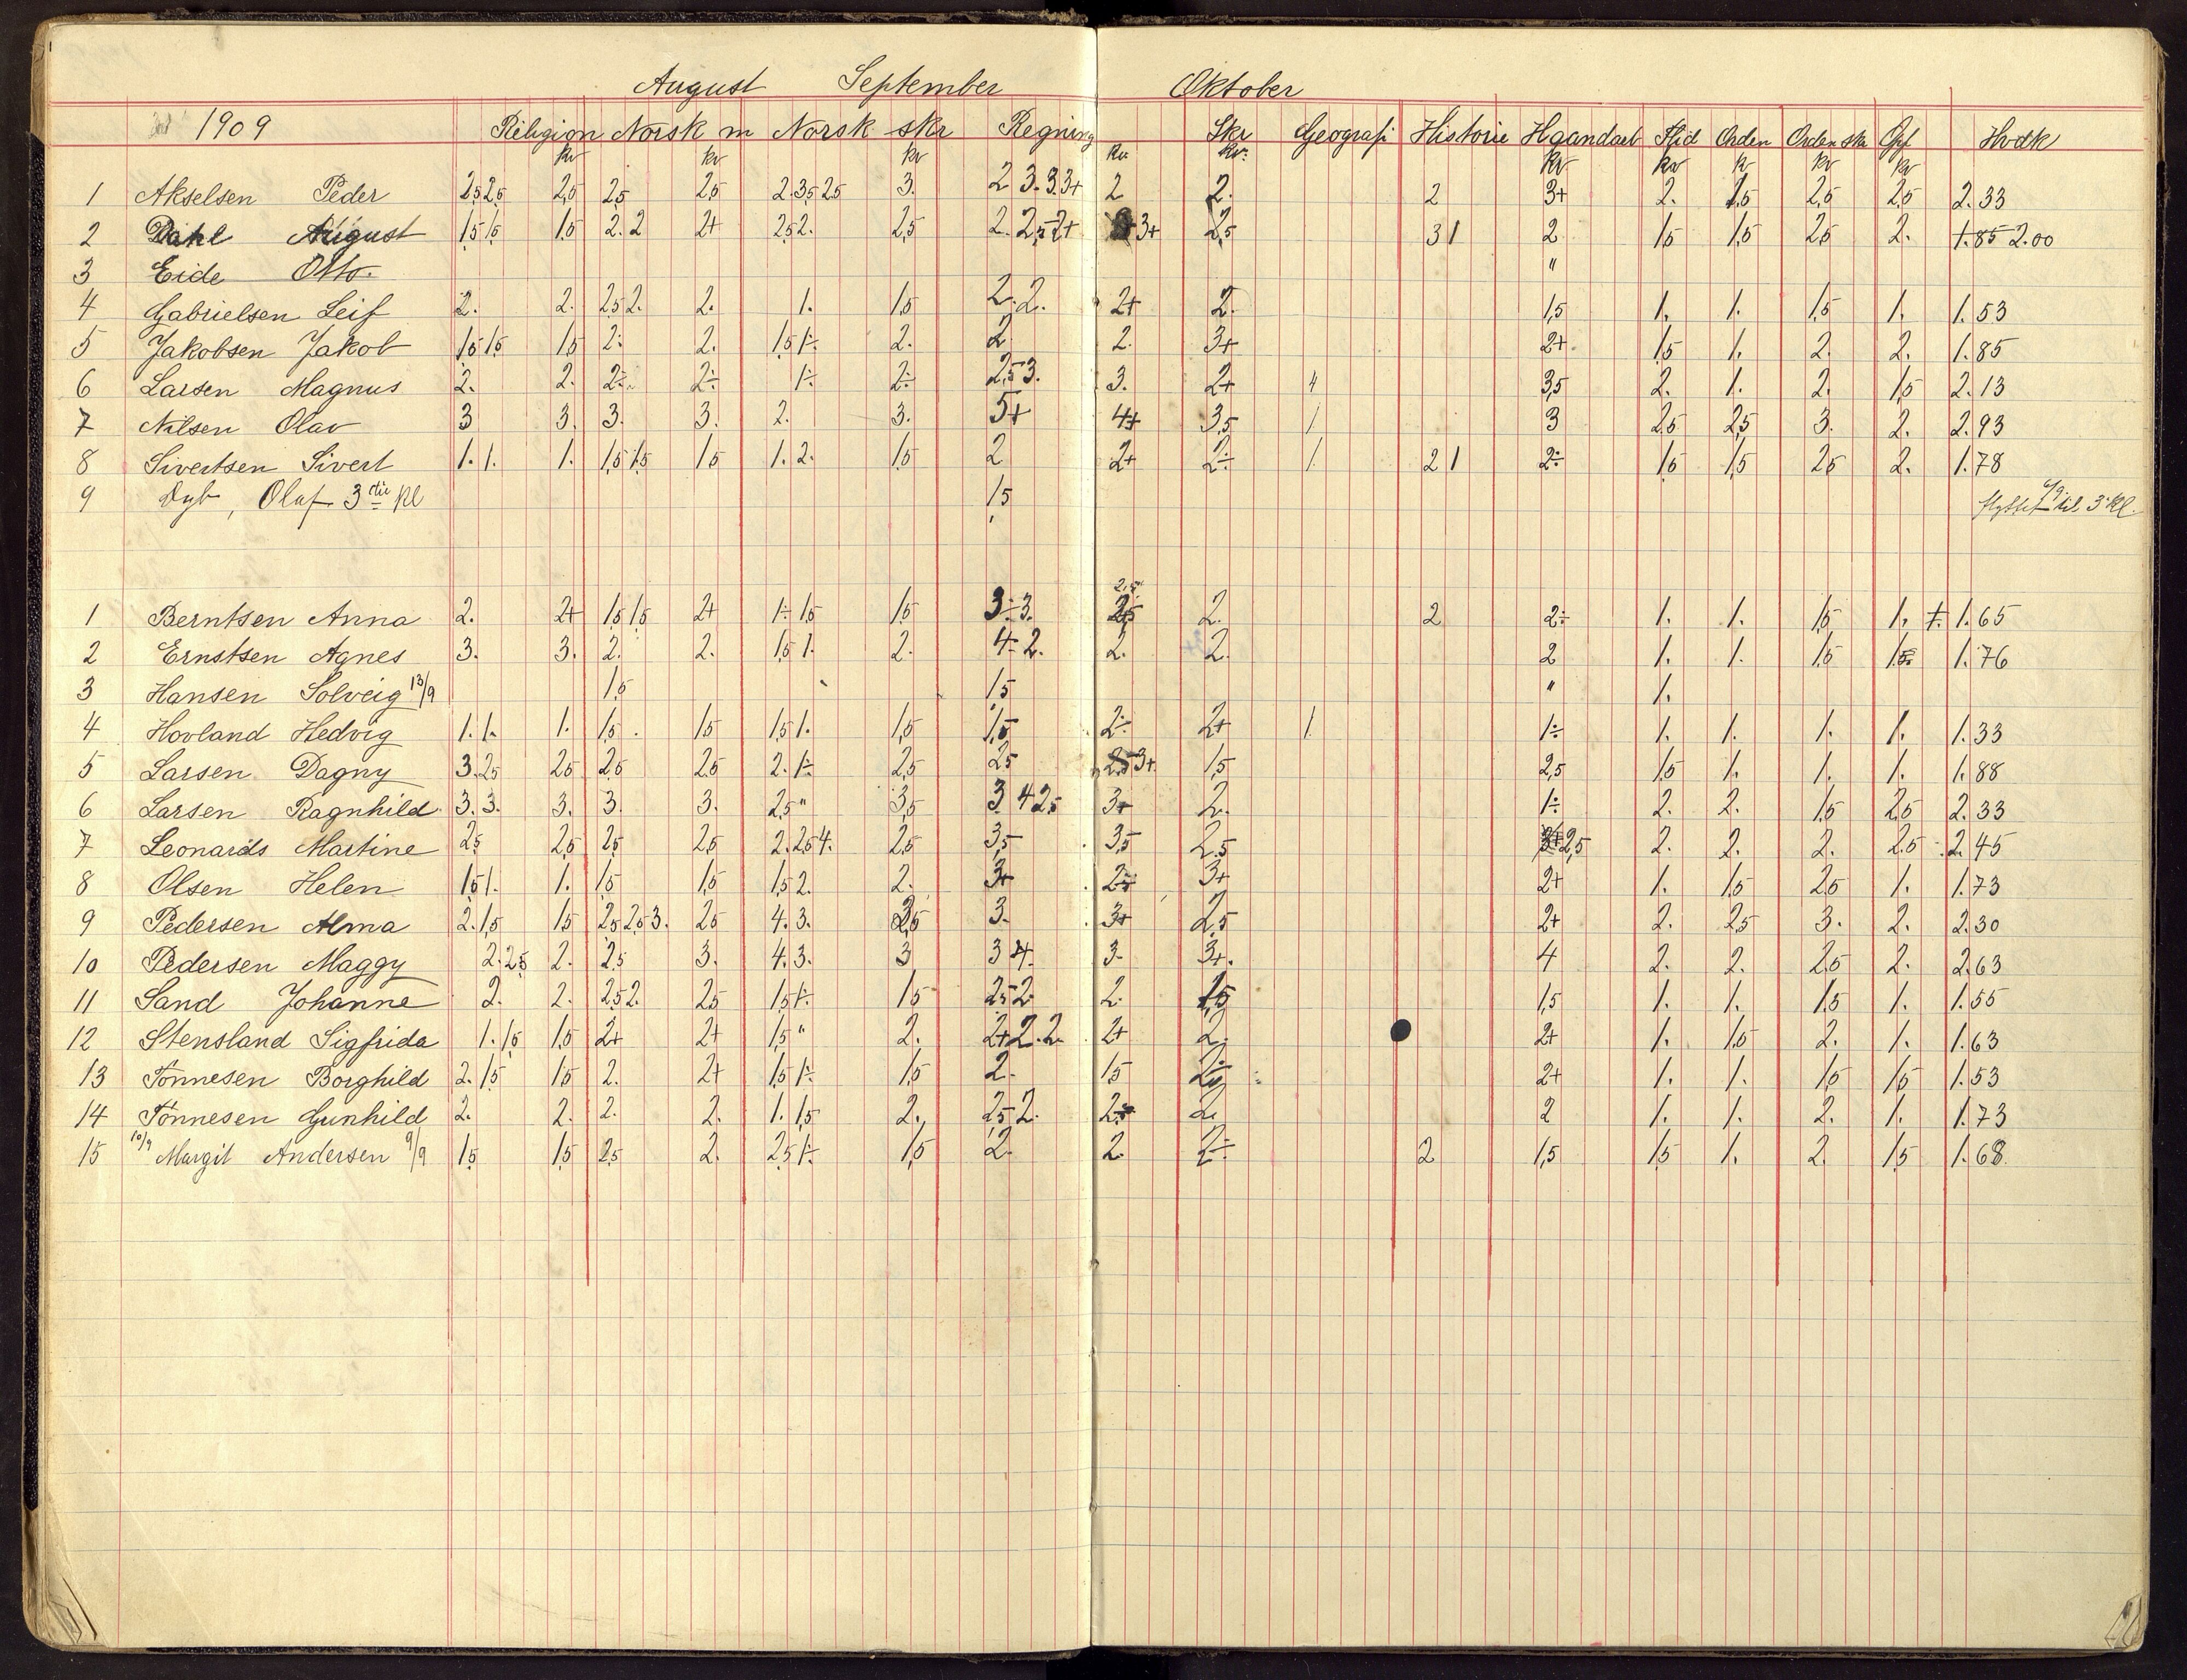 August September Oktober
1909 Religion Norsk m Norsk skr Regning Skr Geografi Historie Haandarb Flid Orden Orden sk Opf Hvdk
kv kv kv kv kv. kv kv kv kv kv
1 Akselsen Peder 2,5 2,5 2,5 2,5 2,5 2. 3,5 2,5 3. 2 3. 3. 3+ 2 2. 2 3+ 2. 1,5 2,5 2,5 2.33
2 Dahl August 1,5 1,5 1,5 2. 2 2+ 2,5 2. 2,5 2. 2,5 2+ 3+ 2,5 3 1 2 1,5 1,5 2,5 2. 1.85 2.00
3 Eide Otto. "
4 Gabrielsen Leif 2. 2. 2,5 2. 2. 1. 1,5 2. 2. 2+ 2. 1,5 1. 1. 1,5 1. 1.53
5 Jakobsen Jakob 1,5 1,5 1,5 2. 2. 1,5 1÷ 2. 2 2. 3+ 2+ 1,5 1. 2. 2. 1.85
6 Larsen Magnus 2. 2. 2÷ 2÷ 1÷ 2÷ 2,5 3. 3. 2+ 4 3,5 2. 1. 2. 1,5 2.13
7 Nilsen Olav 3 3. 3. 3. 2. 3. 5+ 4+ 3,5 1 3 2,5 2,5 3. 2. 2.93
8 Sivertsen Sivert 1. 1. 1. 1,5 1,5 1,5 1. 2. 1,5 2 2+ 2÷ 1 2 1 2÷ 1,5 1,5 2,5 2. 1.78
9 Dyb, Oluf 3die kl 1,5 flyttet til 3 kl.
1 Berntsen Anna 2. 2+ 1,5 1,5 2+ 1÷ 1,5 1,5 3÷ 3. 2,5 2. 2 2÷ 1. 1. 1,5 1. 1.65
2 Ernstsen Agnes 3. 3. 2. 2. 1,5 1. 2. 4÷ 2. 2. 2. 2 1. 1. 1,5 1,5 1.76
3 Hansen Solveig 13/9 1,5 1,5 " 1.
4 Hovland Hedvig 1. 1. 1. 1,5 1,5 1,5 1. 1,5 1,5 2÷ 2+ 1 1÷ 1. 1. 1. 1. 1.33
5 Larsen Dagny 3. 2,5 2,5 2,5 2,5 2. 1÷ 2,5 2,5 2,5 3+ 1,5 2,5 1,5 1. 1. 1. 1.88
6 Larsen Ragnhild 3. 3. 3. 3. 3. 2,5 " 3,5 3 4 2,5 3+ 2. 1÷ 2. 2. 1,5 2,5 2.33
7 Leonards Martine 2,5 2,5 2,5 2,5 2. 2,5 4. 2,5 3,5 3,5 2,5 2,5 2. 2. 2. 2.5 2.45
8 Olsen Helen 1,5 1. 1. 1,5 1,5 1,5 2. 2. 3+ 2÷ 3+ 2+ 1. 1,5 2,5 1. 1.73
9 Pedersen Alma 2. 1,5 1,5 2,5 2,5 3. 2,5 4. 3. 3,5 3. 3+ 2,5 2+ 2. 2,5 3. 2. 2.30
10 Pedersen Maggy 2. 2,5 2. 2,5 3. 4. 3. 3 3 4. 3. 3+. 4 2. 2. 2,5 2. 2.63
11 Sand Johanne 2. 2. 2,5 2. 2,5 1,5 1÷ 1,5 2,5 2. 2. 1,5 1,5 1. 1. 1,5 1. 1.55
12 Stensland Sigfrida 1. 1,5 1,5 2+ 2+ 1,5 " 2. 2+ 2. 2. 2+ 2. 2+ 1. 1,5 2. 1. 1.63
13 Tönnesen Borghild 2. 1,5 1,5 2. 2+ 1,5 1÷ 1,5 2. 1,5 2÷ 2+ 1. 1. 1,5 1,5 1.53
14 Tönnesen Gunhild 2. 2. 2. 2. 1. 1,5 2. 2,5 2. 2÷ 2. 2 1. 1. 2. 1. 1.73
15 10/9 Margit Andersen 9/9 1,5 1,5 2,5 2. 2,5 1÷ 1,5 2. 2. 2÷ 2 1,5 1,5 1. 2. 1,5 1.68